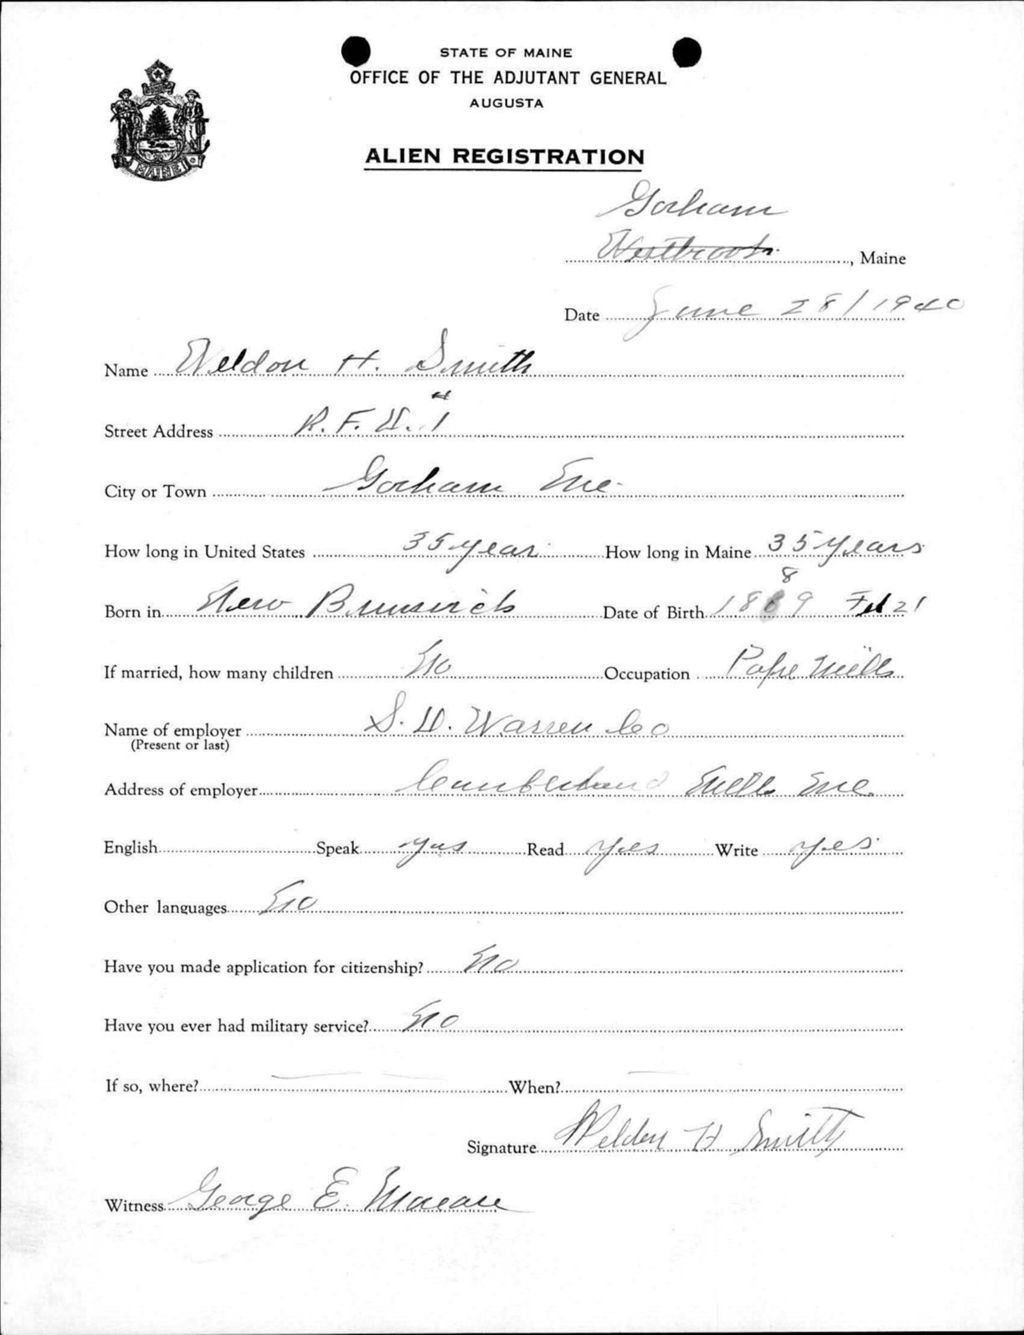 STATE OF MAINE
OFFICE OF THE ADJUTANT GENERAL
AUGUSTA
MAINE
ALIEN REGISTRATION
Gorham
Westbrook, Maine
Date June 28/1940
Name Weldon H. Smith
Street Address R.F.D. #1
City or Town Gorham Me.
How long in United States 35 year How long in Maine 35 years
Born in New Brunswick Date of Birth 1889 Feb 21
If married, how many children No Occupation Pape Mills
Name of employer S. D. Warren Co
(Present or last)
Address of employer Cumberland Mills Me.
English Speak yes Read Yes Write yes
Other languages No
Have you made application for citizenship? No
Have you ever had military service? No
If so, where? When?
Signature Weldon H Smith
Witness George E.